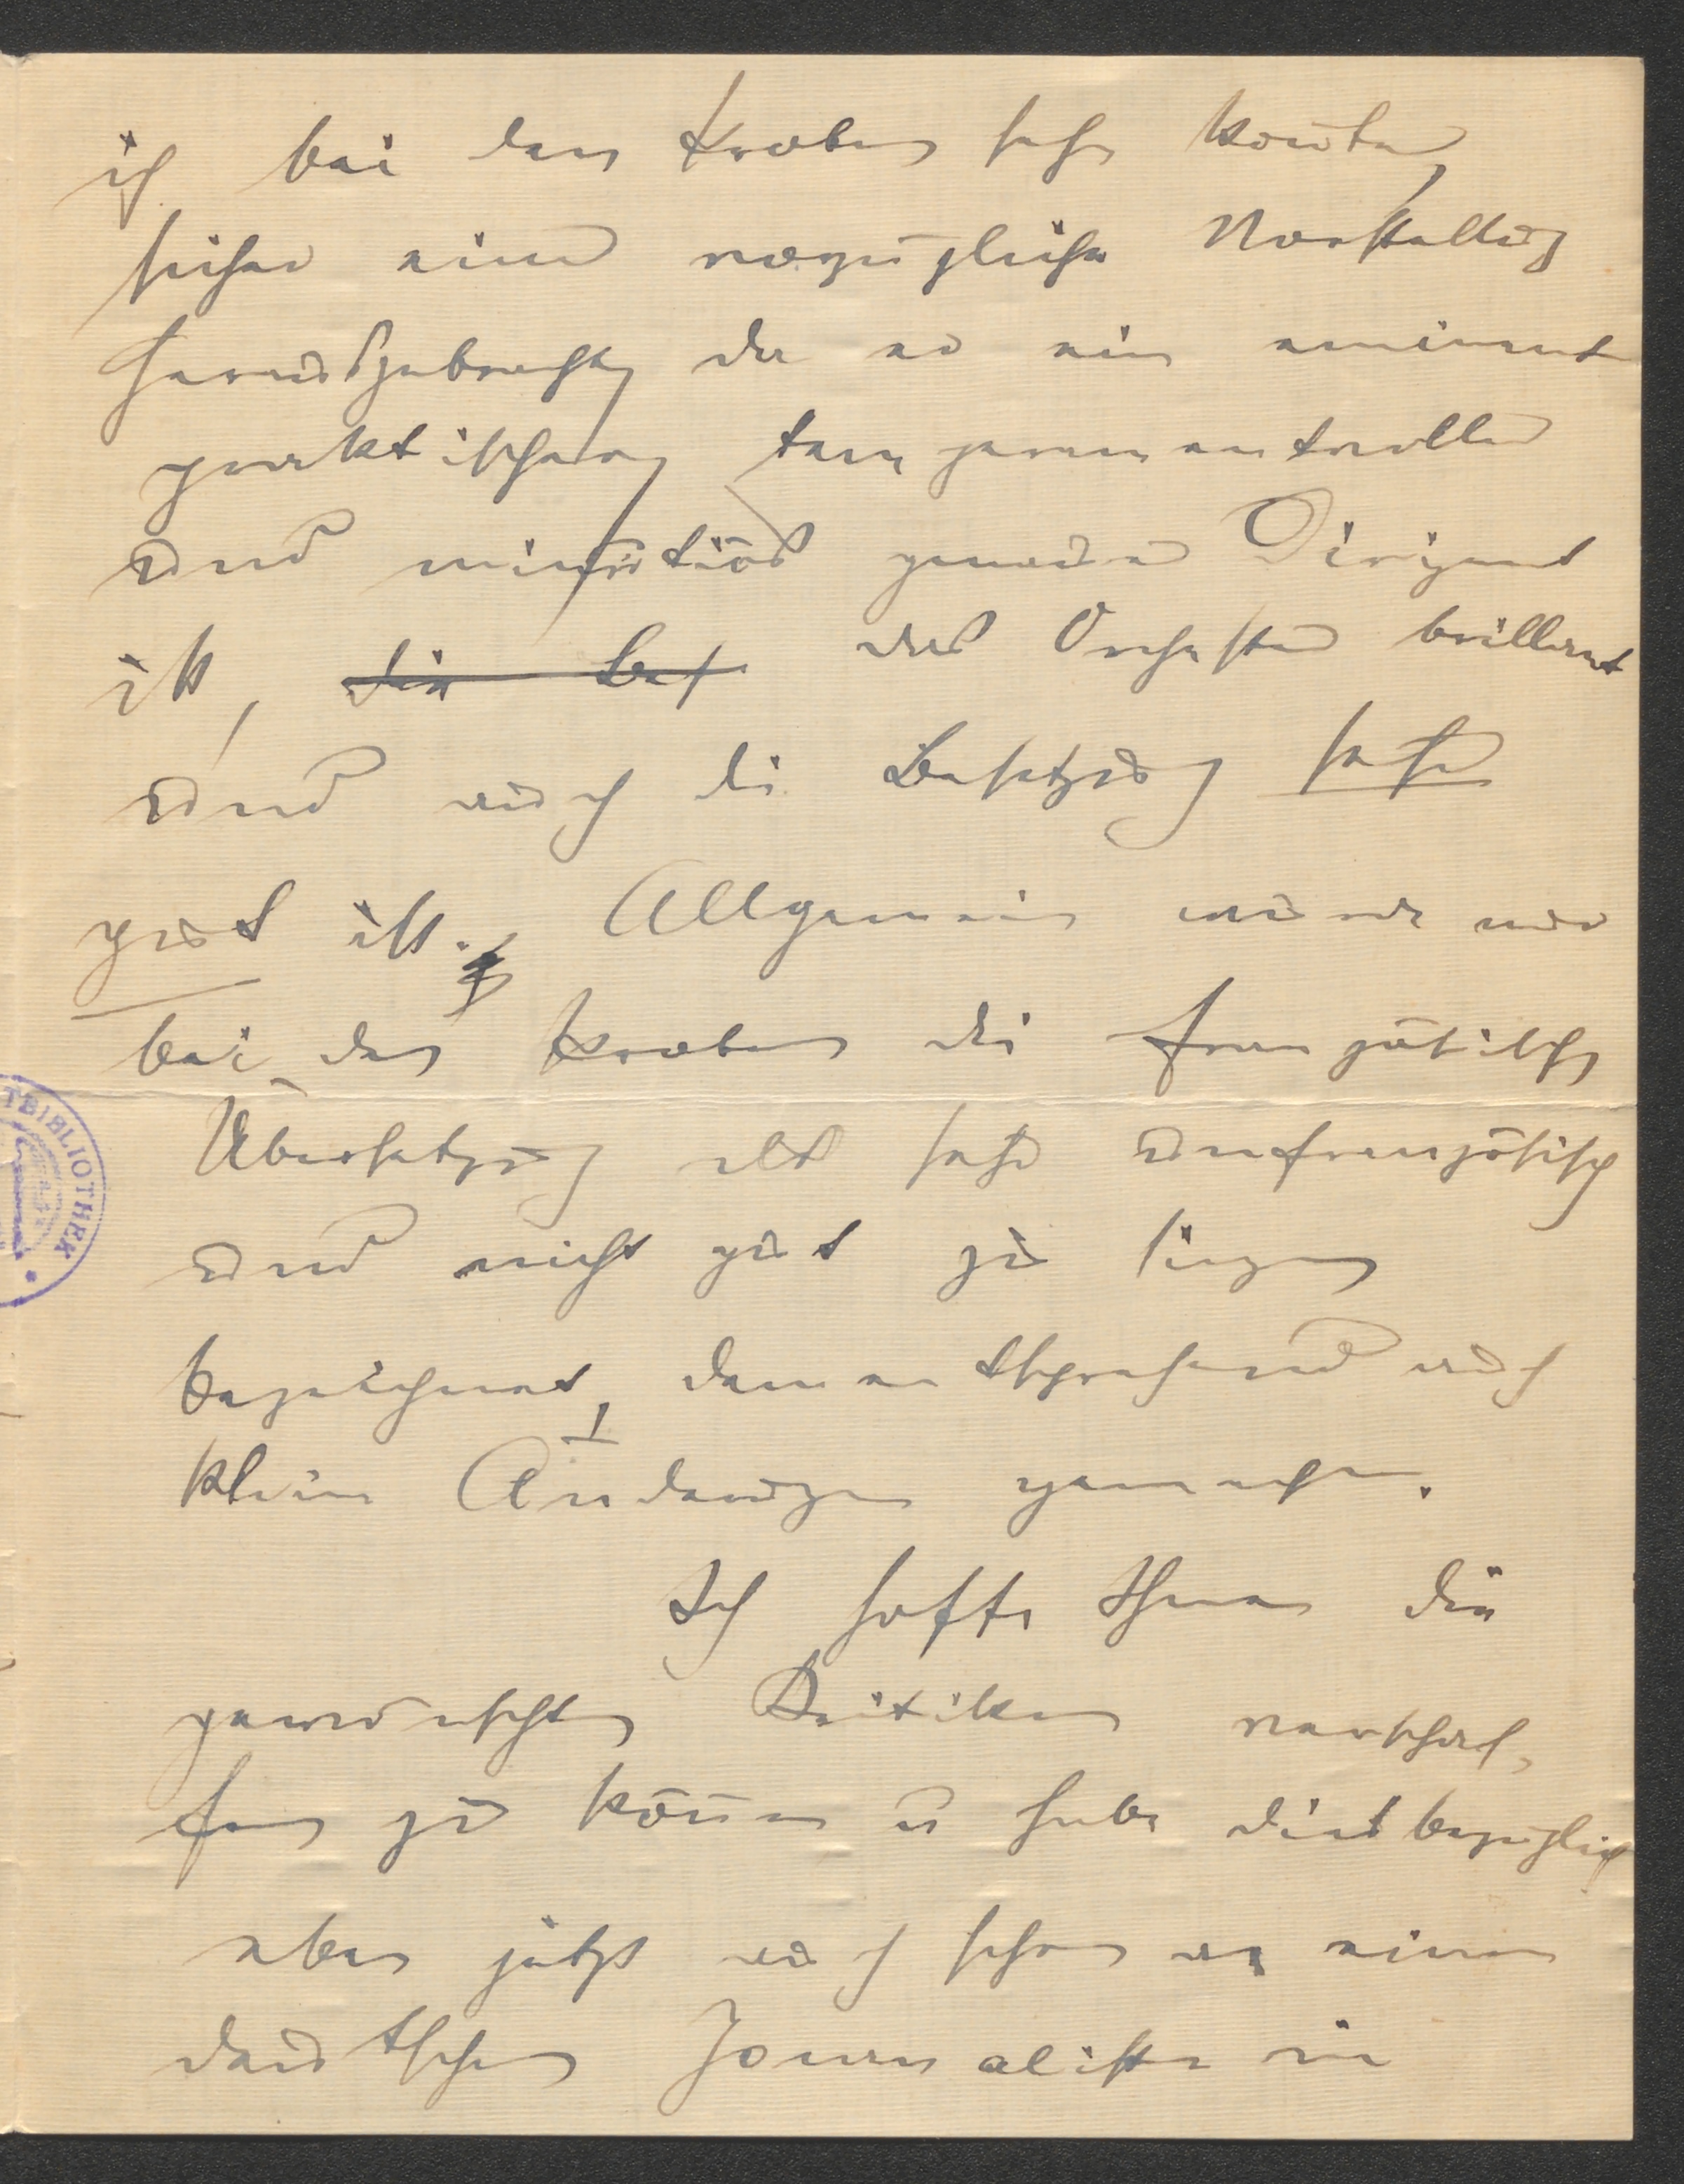 ich bei den Proben sehen konnte,
sicher eine vorzügliche Vorstellung
herausgebracht, da er ein eminent
praktischer, temperamentvoller
und minutiös genauer Dirigent
ist, die Bes das Orchester brillant
und auch die Besetzung sehr
gut ist. Allgemein wurde nur
bei den Proben die französische
Übersetzung als sehr unfranzösisch
und nicht gut zu singen
bezeichnet, dementsprechend auch
kleine Änderungen gemacht.
Ich hoffe Ihnen die
gewünschten Kritiken verschaf-
fen zu können u habe diesbezüglich
eben jetzt auch schon an einen
deutschen Journalisten in
TBIBLIOTHEK